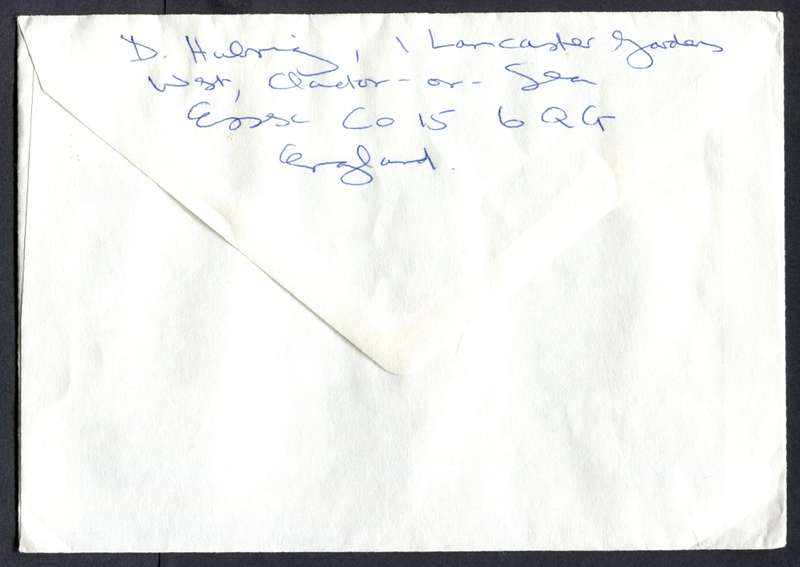 D. Helmig, 1 Lancaster Gardens
West, Clacton-on-Sea
Essex CO15 6QG
England.